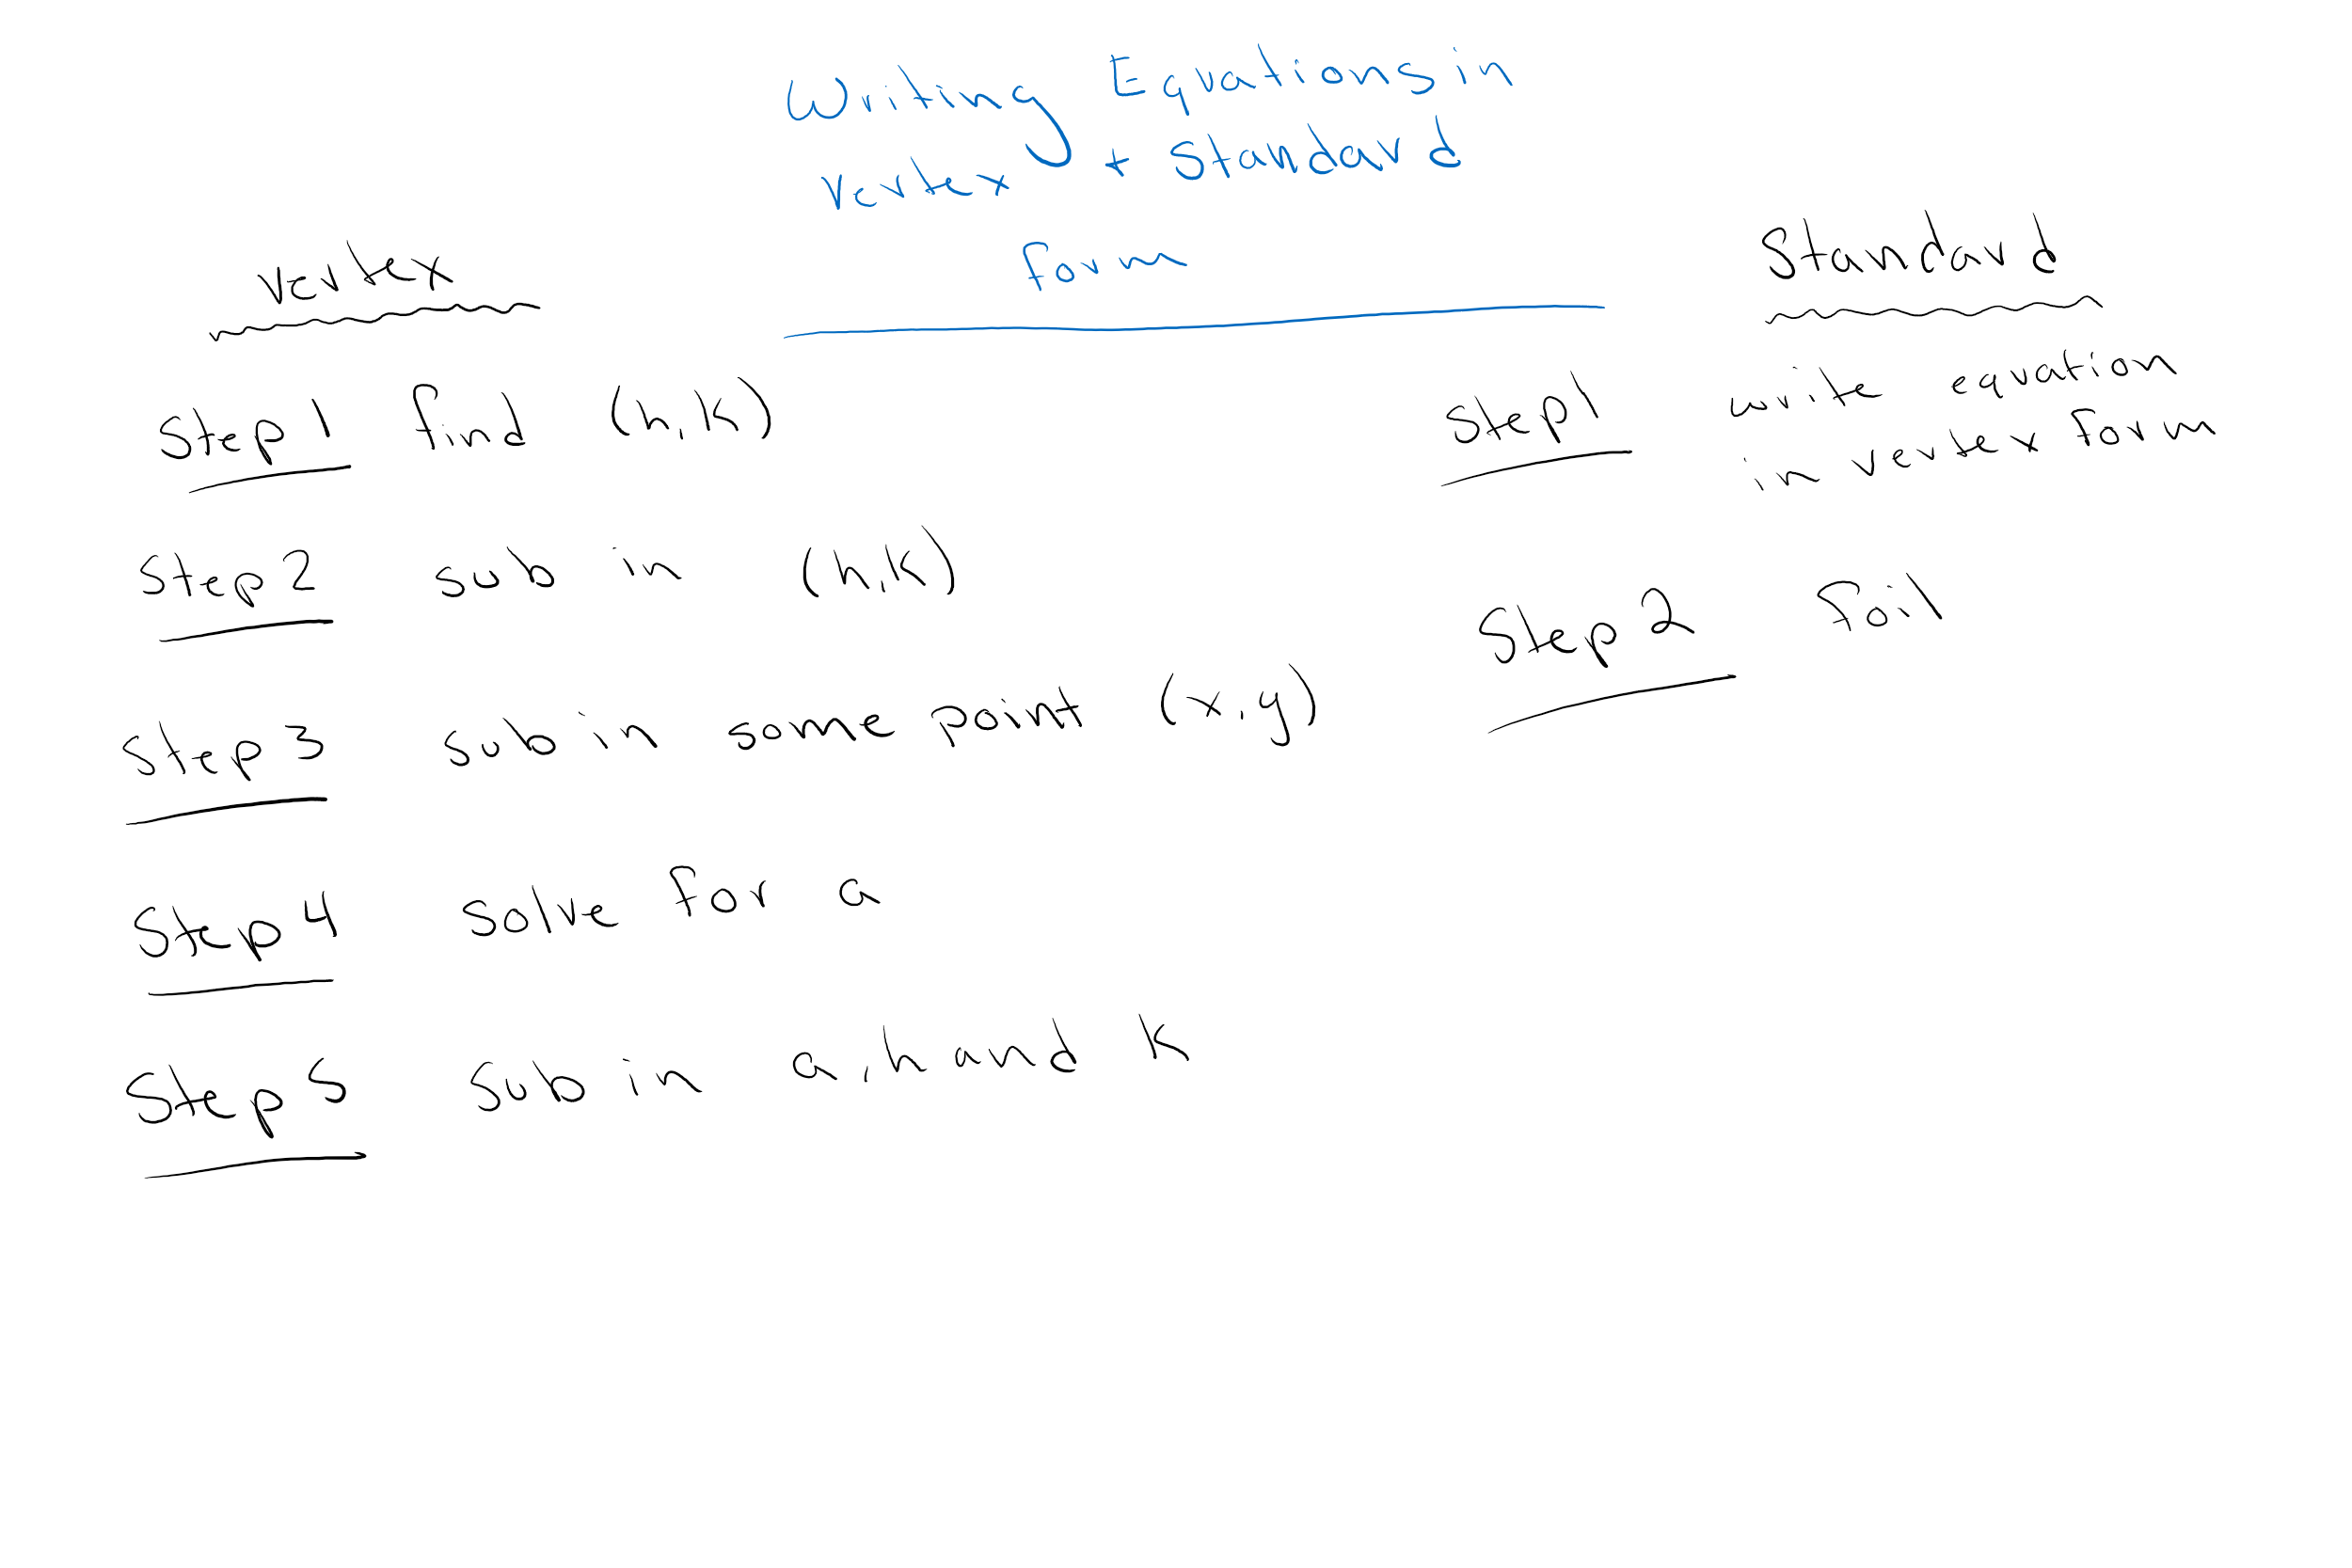 Writing Equations in
vertex + Standard
form
vertex
Step 1 find (h,k)
Step 2 sub in (h,k)
Step 3 sub in some point (x,y)
Step 4 Solve for a
Step 5 Sub in a, h and k
Standard
Step 1 write equation
in vertex form
Step 2 Foil